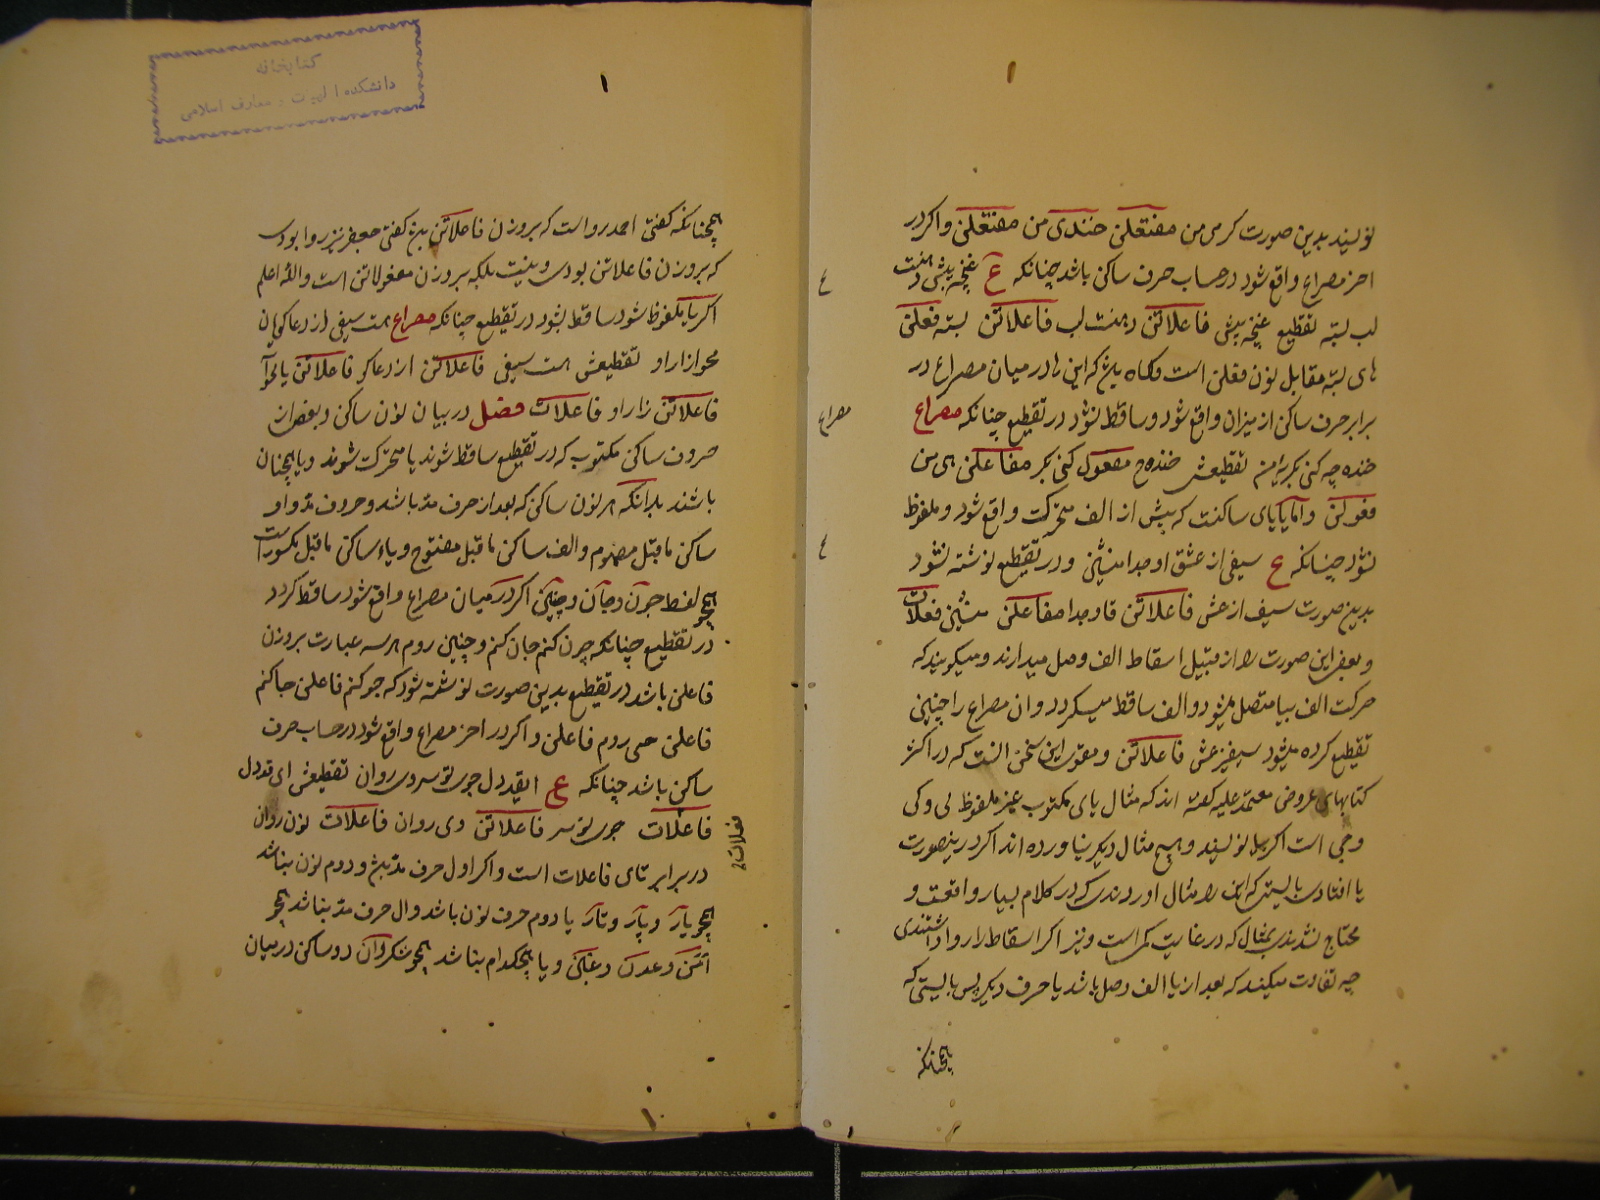 نویسند بدین صورت کرمی من مفتعلن خندی من مفتعلن واکر در
اخر مصراع واقع شود در حساب حرف ساکن باشد چنانکه ع غنچه پیش دهنت
لب بسته تقطیع غنچه پیشی فاعلاتن دهنت لب فاعلاتن بسته فعلن
های بسته مقابل نون فعلن است وکاه بدین که این ها در میان مصراع در
برابر حرف ساکن از میزان واقع شود و ساقط نشود در تقطیع چنانکه مصراع
خنده چه کنی بکریه ام تقطیعش خنده چ مفعول کنی بکر مفاعلن یی من
فعولن واما یای ساکنت که پیش از الف متحرکت واقع شود و ملفوظ
نشود چنانکه ع سیفی از عشق او جدا منشین ودر تقطیع نوشته نشود
بدین صورت سیف از عش فاعلاتن قاو جدا مفاعلن منشین فعلات
و بعض این صورت را از قبیل اسقاط الف وصل میدارند و میکویند که
حرکت الف بیا متصل میشود و الف ساقط میکردد وان مصراع را چنین
تقطیع کرده میشود سیفیزعش فاعلاتن و مقوی این سخن انست که در اکثر
کتابهای عروض معتمد علیه کفته اند که مثال یای مکتوب غیر ملفوظ بی و کی
و چی است اکر بیا نویسند و هیچ مثال دیکر نیاورده اند اکر در ینصورت
یا افتادی بایستی که این را مثال اوردندی که در کلام بسیار واقعست و
محتاج نشدندی بمثال که در غایت کم است و نیز اکر اسقاط را روا داشتندی
چه تفاوت میکند که بعد از یا الف وصل باشد یا حرف دیکر پس بایستی که
همچنانکه
ع
مصراع
ع
کتابخانه
دانشکده الهیات و معارف اسلامی
همچنانکه کفتی احمد رواست که بر وزن فاعلاتن بین کفتی جعفر نیز روا بودی
که بر وزن فاعلاتن بودی و نیست بلکه بر وزن مفعولاتن است والله اعلم
اکر یا ملفوظ شود ساقط نشود در تقطیع چنانکه مصراع هست سیفی از دعا کویان
محو ازار او تقطیعش هست سیفی فاعلاتن از دعا کو فاعلاتن یا محوآ
فاعلاتن زار او فاعلات فصل در بیان نون ساکن و بعض از
حروف ساکن مکتوب که در تقطیع ساقط شوند یا متحرکت شوند ویا همچنان
باشند بدانکه هر نون ساکن که بعد از حرف مد باشد و حروف مد واو
ساکن ما قبل مضموم والف ساکن ما قبل مفتوح و یاء ساکن ما قبل مکسورست
همچو لفظ چون و جان و چنین اکر در میان مصراع واقع شود ساقط کردد
در تقطیع چنانکه چون کنم جان کنم و چنین روم هر سه عبارت بر وزن
فاعلن باشد در تقطیع بدین صورت نوشته شود که جو کنم فاعلن جا کنم
فاعلن چی روم فاعلن واکر در اخر مصراع واقع شود در حساب حرف
ساکن باشد چنانکه ع ایقددل جوی تو سروی روان تقطیعش ای قددل
فاعلات جوی تو سر فاعلاتن وی روان فاعلات نون روان
در برابر تای فاعلات است واکر اول حرف مد نبش و دوم نون نباشد
همچو یار و پار و تار یا دوم حرف نون باشد واول حرف مد نباشد همچو
و عدن و ویا هیچکدام نباشد همچو شکر وان دو ساکن در میان
فعلات